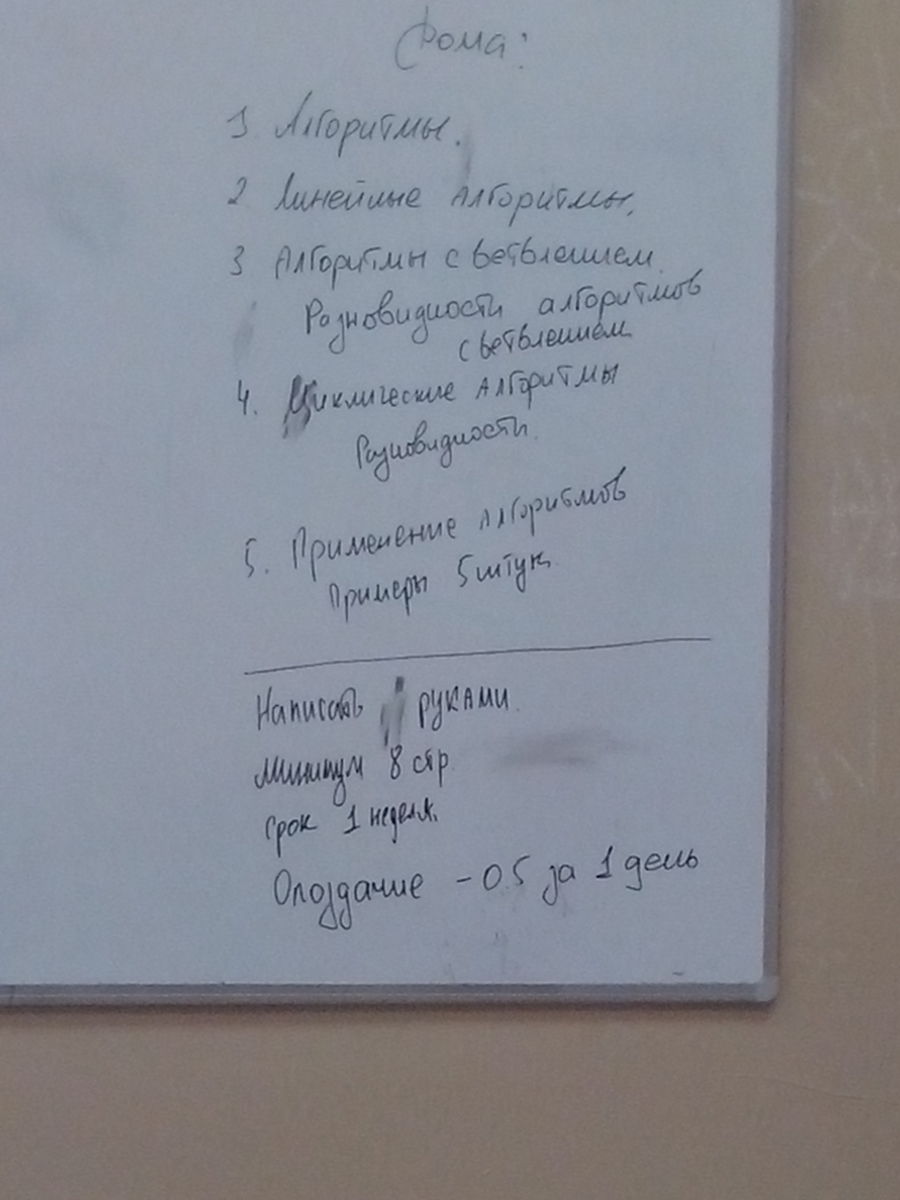 Фома:
1 Алгоритмы.
2 Линейные Алгоритмы.
3 Алгоритмы с ветвлением.
Разновидности алгоритмов
с ветвлением
4. Циклические Алгоритмы
Разновидности.
5. Применение Алгоритмов
Примеры 5 штук.
Написать руками.
Минимум 8 стр.
Срок 1 неделя.
Опоздание - 0.5 за 1 день